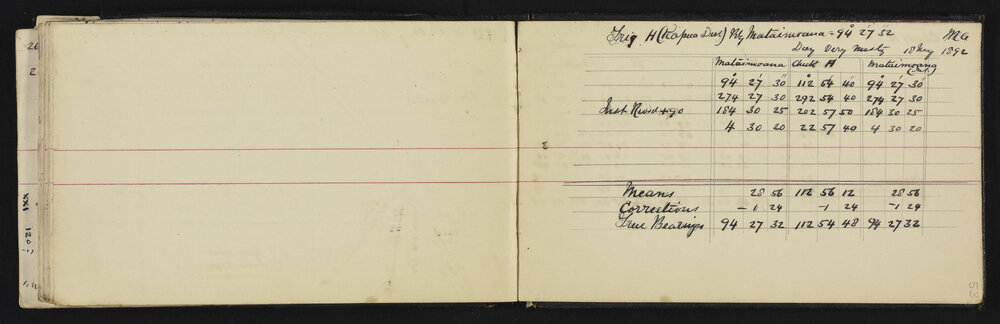 Trig H (Kapua Dist) Brg Mataimoana = 94° 27' 32 MG
Day Very Misty 18 May 1892
Mataimoana Check A Mataimoana
94° 27' 30" 112° 54' 40" 94° 27' 30"
274 27 30 292 54 40 274 27 30
Inst Revsd + 90 184 30 25 202 57 50 184 30 25
4 30 20 22 57 40 4 30 20
Means 28 56 112 56 12 28 56
Corrections - 1 24 -1 24 -1 24
True Bearings 94 27 32 112 54 48 94 27 32
XXI 120